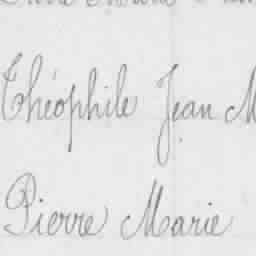 Théophile Jean M
Pierre Marie